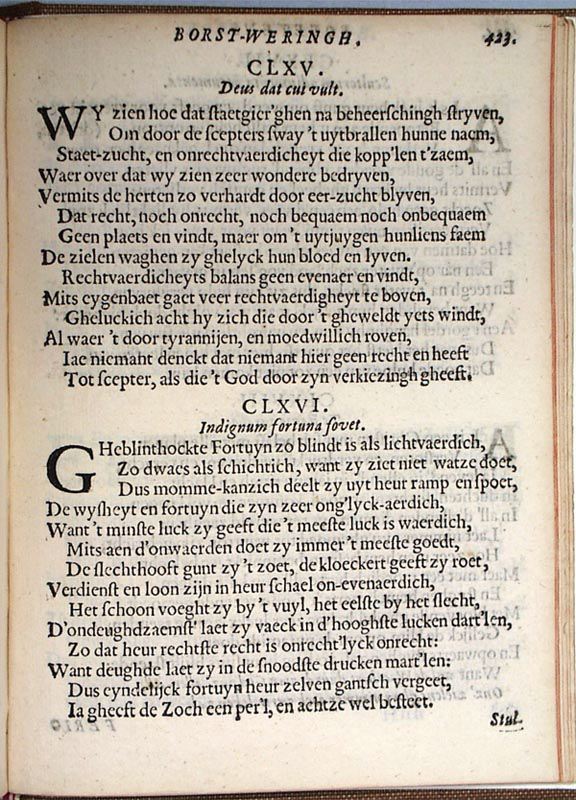 BORST-WERINGH. 423.
CLXV.
Deus dat cui vult.
WY zien hoe dat ſtaetgier'ghen na beheerſchingh ſtryven,
Om door de ſcepters ſway 't uytbrallen hunne naem,
Staet-zucht, en onrechtvaerdicheyt die kopp'len t'zaem,
Waer over dat wy zien zeer wondere bedryven,
Vermits de herten zo verhardt door eer-zucht blyven,
Dat recht, noch onrecht, noch bequaem noch onbequaem
Geen plaets en vindt, maer om 't uytjuygen hunliens faem
De zielen waghen zy ghelyck hun bloed en lyven.
Rechtvaerdicheyts balans geen evenaer en vindt,
Mits eygenbaet gaet veer rechtvaerdigheyt te boven,
Gheluckich acht hy zich die door 't gheweldt yets windt,
Al waer 't door tyrannijen, en moedwillich roven,
Iae niemant denckt dat niemant hier geen recht en heeft
Tot ſcepter, als die 't God door zyn verkiezingh gheeft.
CLXVI.
Indignum fortuna fovet.
GHeblinthockte Fortuyn zo blindt is als lichtvaerdich,
Zo dwaes als ſchichtich, want zy ziet niet watze doet,
Dus momme-kanzich deelt zy uyt heur ramp en ſpoet,
De wyſheyt en fortuyn die zyn zeer ong'lyck-aerdich,
Want 't minſte luck zy geeft die 't meeſte luck is waerdich,
Mits aen d'onwaerden doet zy immer 't meeſte goedt,
De ſlechthooft gunt zy 't zoet, de kloeckert geeft zy roet,
Verdienſt en loon zijn in heur ſchael on-evenaerdich,
Het ſchoon voeght zy by 't vuyl, het eelſte by het ſlecht,
D'ondeughdzaemſt' laet zy vaeck in d'hooghſte lucken dart'len,
Zo dat heur rechtſte recht is onrecht'lyck onrecht:
Want deughde laet zy in de ſnoodſte drucken mart'len:
Dus eyndelijck fortuyn heur zelven gantſch vergeet,
Ia gheeft de Zoch een per'l, en achtze wel beſteet.
Stul.